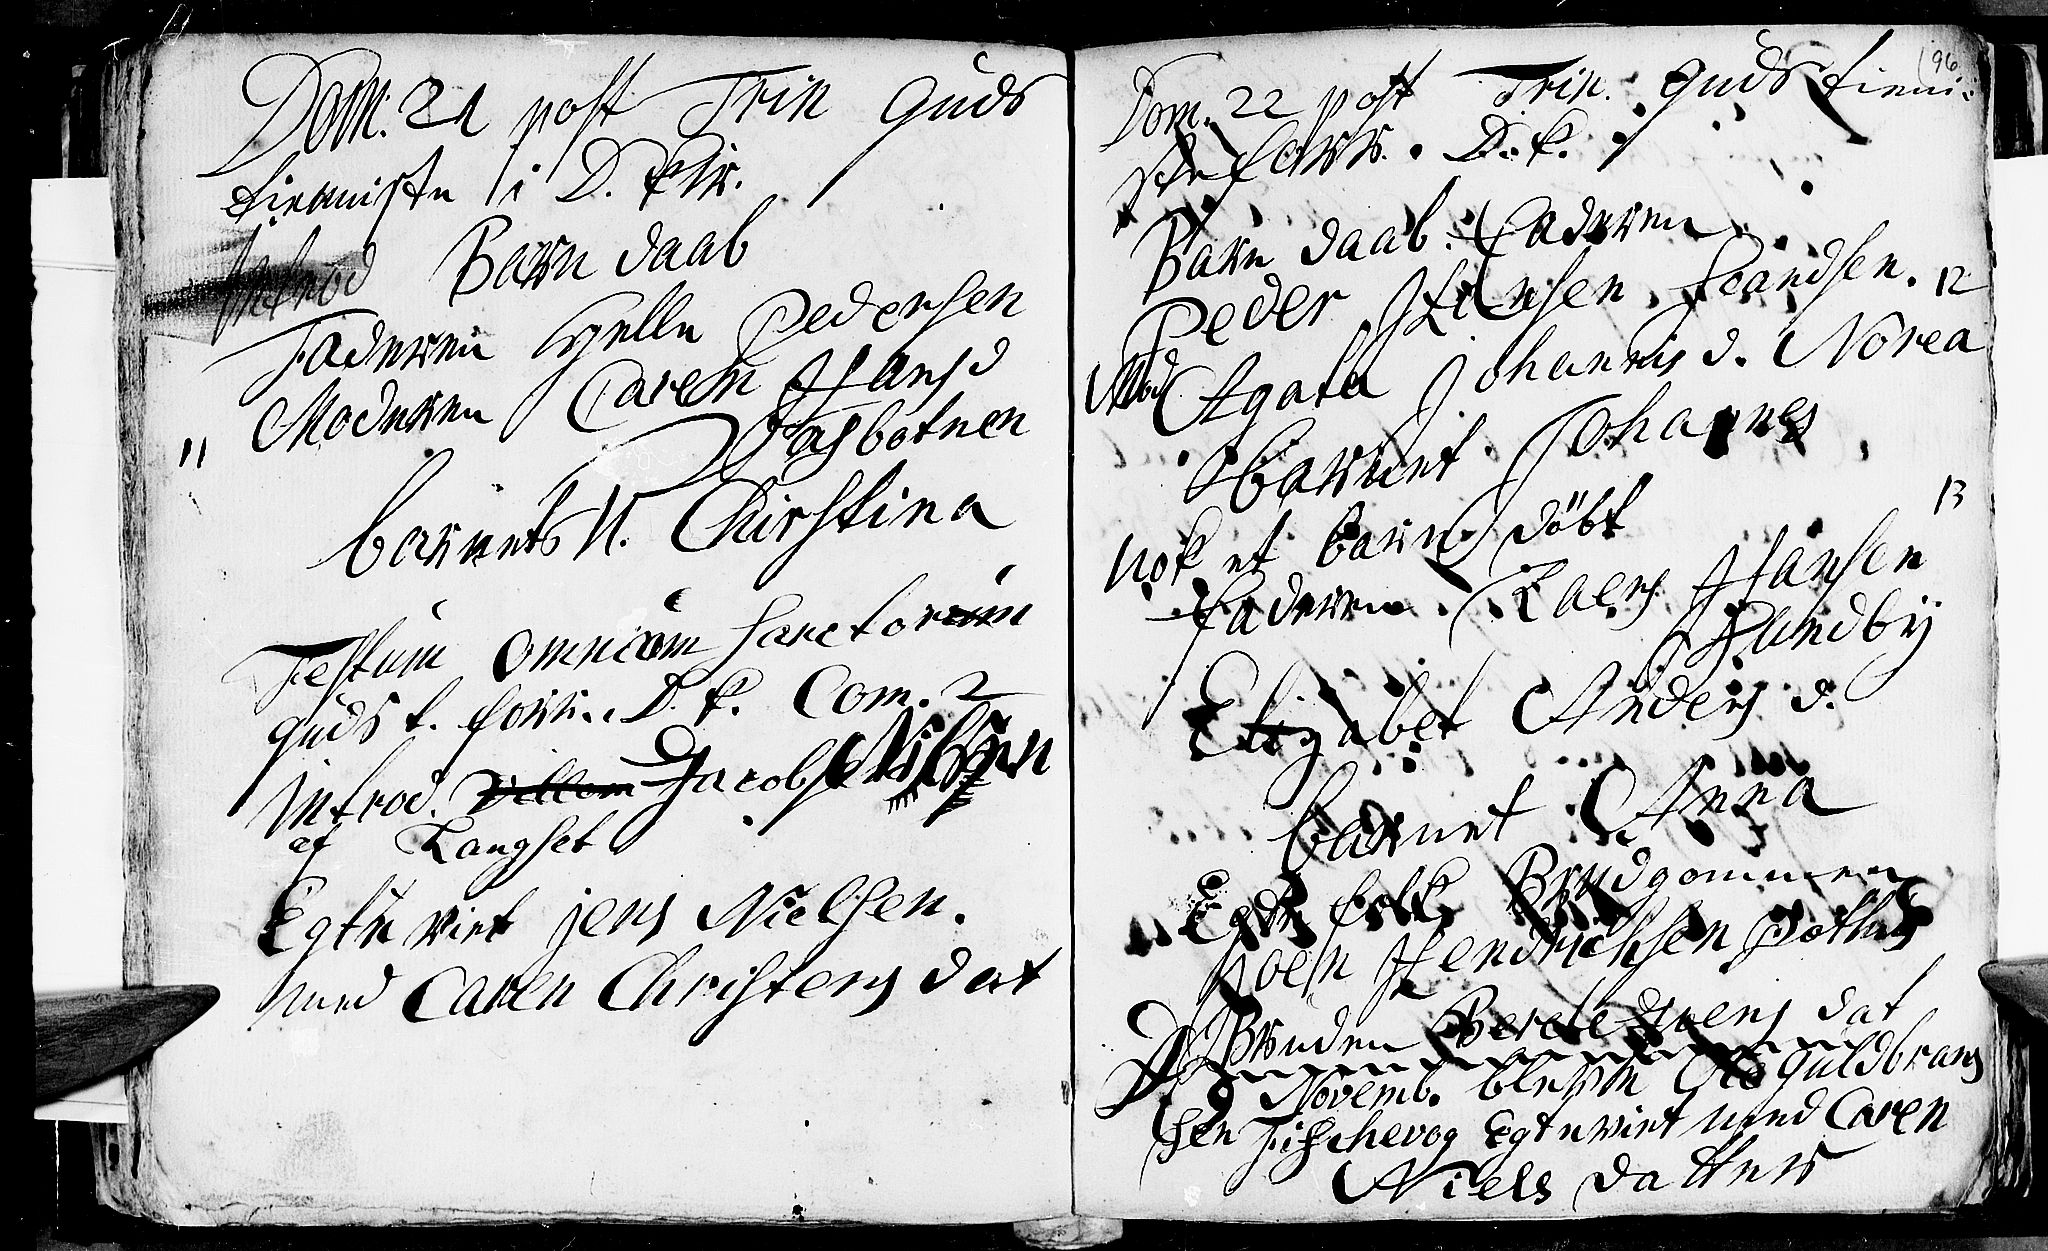 Dom: 21 post Trin Guds
tienniste i D. Kir.
Introd Barn daab
Faderen Pedersen
Moderen Caren Hans d
11 Fasbotnen
barnets N. Chirstina
Festum omnium sanctorum
Guds t. forr. D. K. Com. 2
Introd. Jacobs
af Langset
Egteviet jens Nielsen.
med Caren Christens dat
96
Dom. 22 post Trin. Guds tieni-
ste forr. D. K.
Barn daab. Faderen
Peder Jensen 12
Mod Agata Johannis d. Norea
barnet Johannes
nok et barn döbt 13
Faderen Laers Hansen
Sundbÿ
Elizabet Anders d.
barnet Anna
Egte folk Brudgommen
Joen Hendrichsen
Bruden Berete Joens dat
9 Novemb. blefven Ole Guldbrans
sen Fischevog Egteviet med Caren
Niels datter